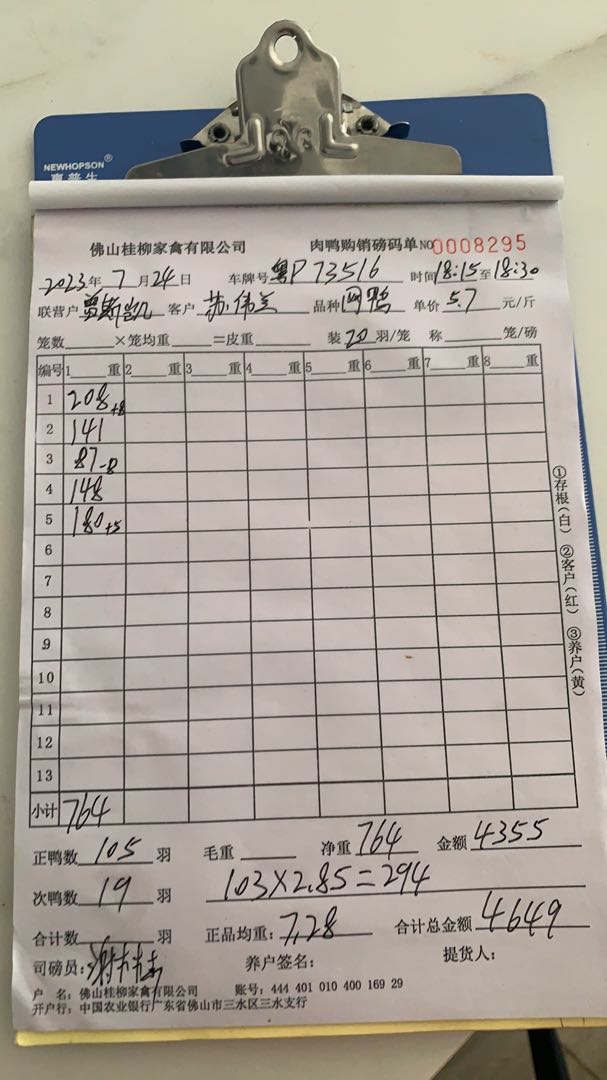 NEWHOPSON®
佛山桂柳家禽有限公司 肉鸭购销磅码单 NO 0008295
2023年 7月24日 车牌号 粤P73516 时间 18:15 至 18:30
联营户 客户 伟兰 品种 网鸭 单价 5.7 元/斤
笼数 ×笼均重 =皮重 装 20 羽/笼 称 笼/磅
编号 1 重 2 重 3 重 4 重 5 重 6 重 7 重 8 重
1 208 +8
2 141
3 87 -8
4 148
5 180 +5
6
7
8
9
10
11
12
13
小计 764
①存根(白) ②客户(红) ③养户(黄)
正鸭数 105 羽 毛重 净重 764 金额 4355
次鸭数 19 羽 103×2.85=294
合计数 羽 正品均重: 7.28 合计总金额 4649
司磅员: 养户签名: 提货人:
户 名: 佛山桂柳家禽有限公司 账号: 444 401 010 400 169 29
开户行: 中国农业银行广东省佛山市三水区三水支行